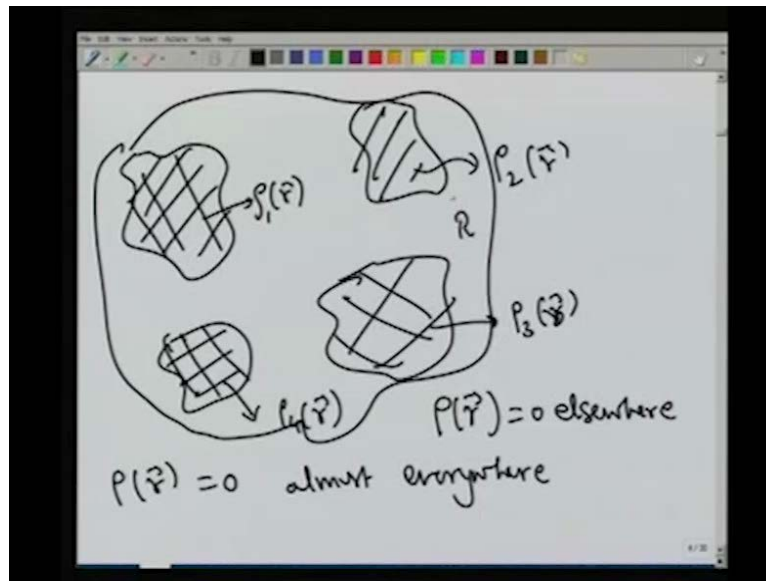 File Edit View Insert Actions Tools Help
ρ₁(r⃗)
ρ₂(r⃗)
R
ρ₃(r⃗)
ρ₄(r⃗)
ρ(r⃗) = 0 elsewhere
ρ(r⃗) = 0 almost everywhere